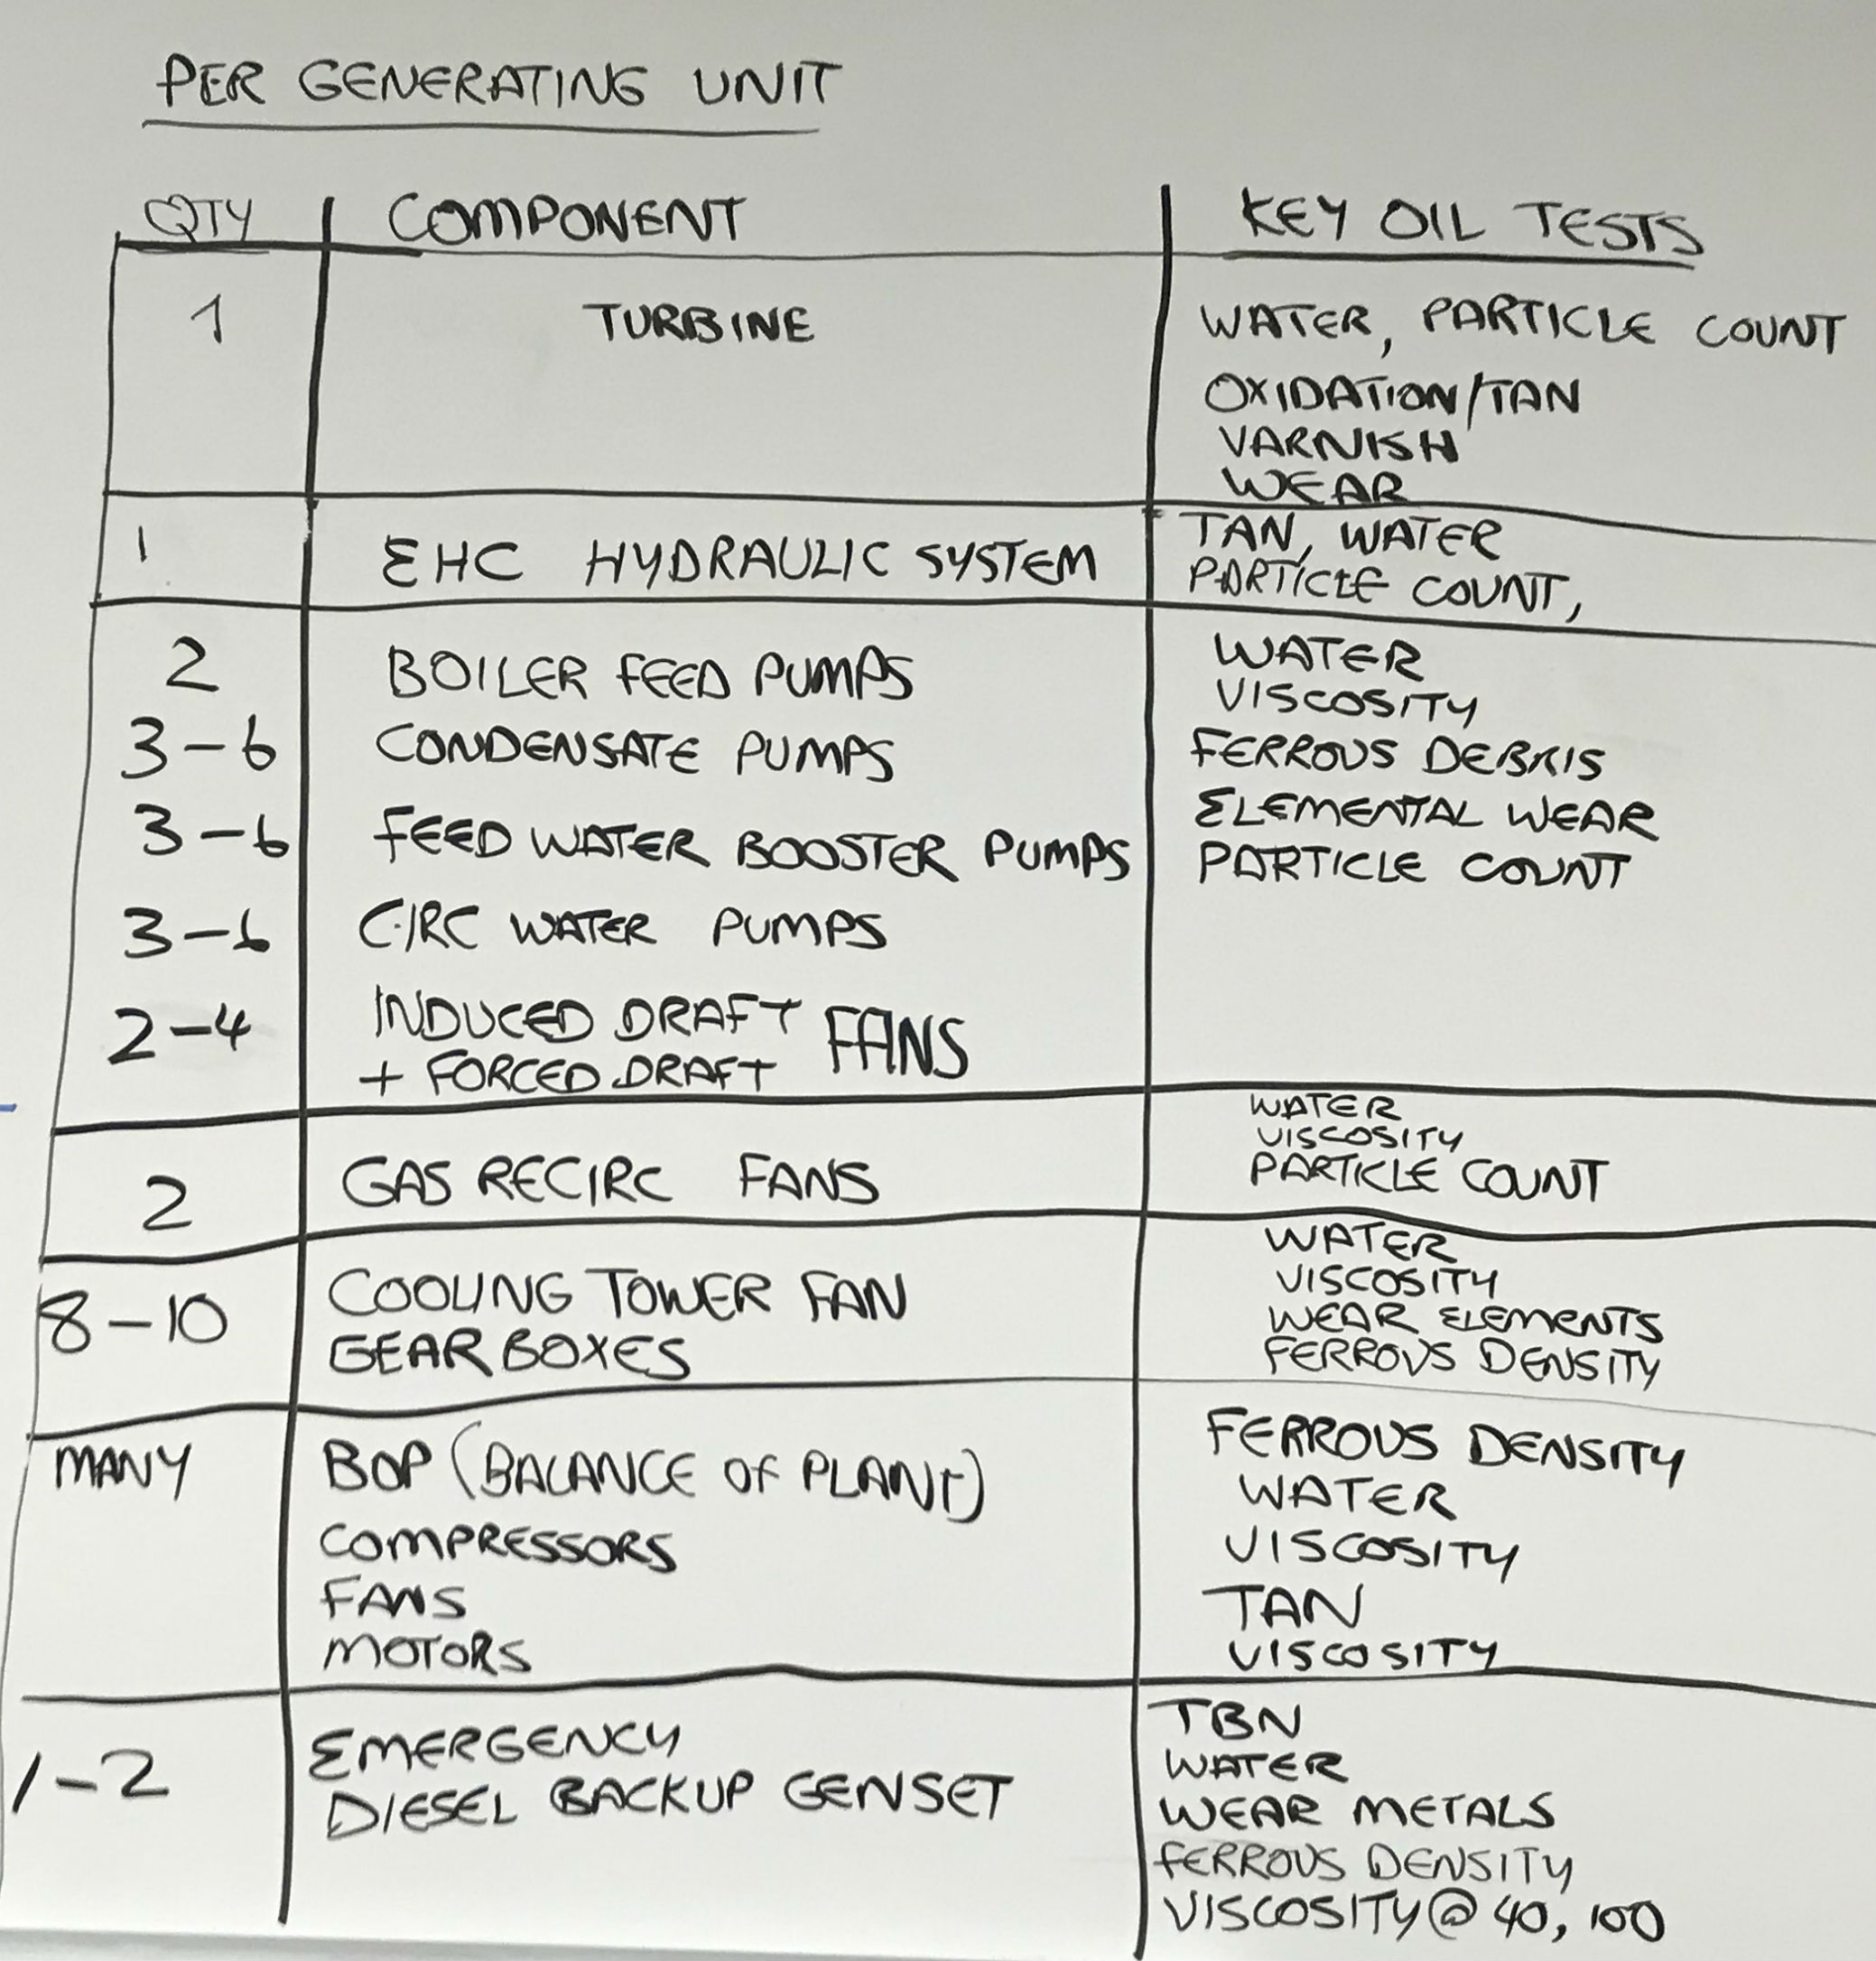 PER GENERATING UNIT
QTY COMPONENT KEY OIL TESTS
1 TURBINE WATER, PARTICLE COUNT
OXIDATION/TAN
VARNISH
WEAR
1 EHC HYDRAULIC SYSTEM TAN, WATER
PARTICLE COUNT,
2 BOILER FEED PUMPS WATER
VISCOSITY
3-6 CONDENSATE PUMPS FERROUS DEBRIS
ELEMENTAL WEAR
3-6 FEED WATER BOOSTER PUMPS PARTICLE COUNT
3-6 CIRC WATER PUMPS
2-4 INDUCED DRAFT FANS
+ FORCED DRAFT
WATER
VISCOSITY
2 GAS RECIRC FANS PARTICLE COUNT
WATER
8-10 COOLING TOWER FAN VISCOSITY
WEAR ELEMENTS
GEAR BOXES FERROUS DENSITY
MANY BOP (BALANCE OF PLANT) FERROUS DENSITY
WATER
COMPRESSORS VISCOSITY
FANS TAN
MOTORS VISCOSITY
TBN
1-2 EMERGENCY WATER
DIESEL BACKUP GENSET WEAR METALS
FERROUS DENSITY
VISCOSITY@ 40, 100